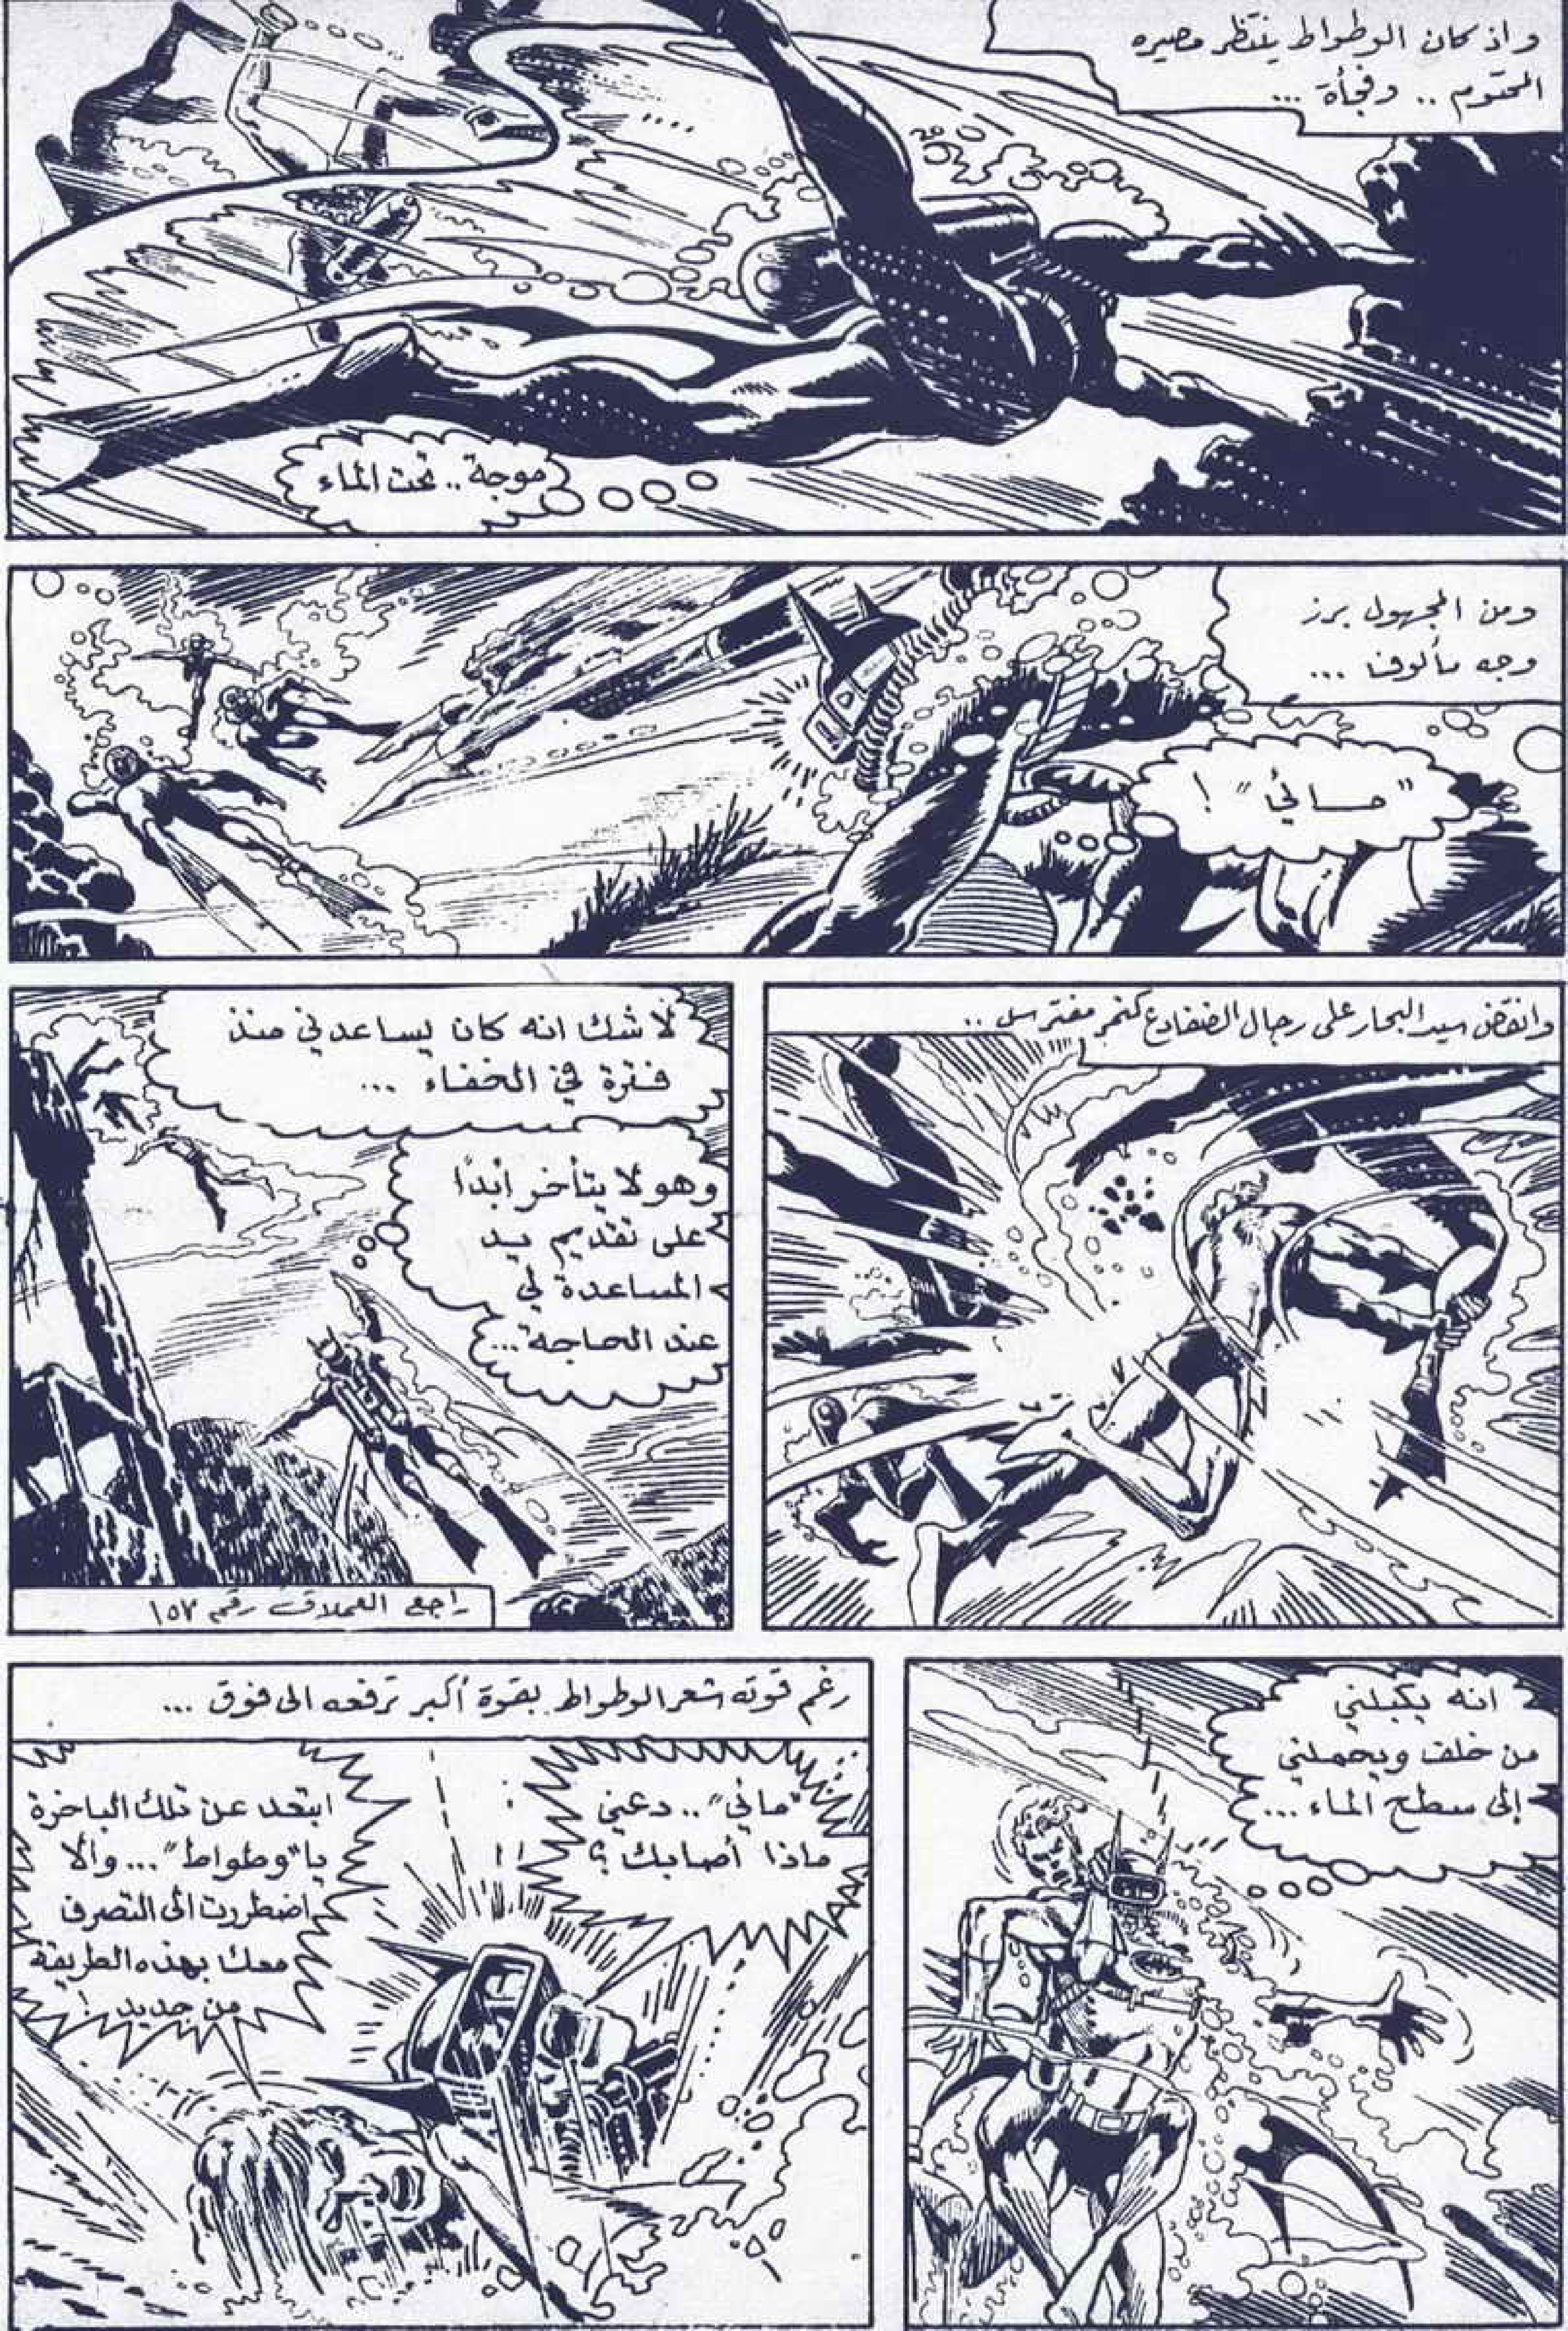 واذ كان الوطواط ينتظر مصيره
المحتوم .. وفجأة ...
موجة .. تحت الماء
ومن المجهول برز
وجه مألوف ...
"مائي" !
وانقض سيد البحار على رجال الضفادع كنمر مفترس ..
لا شك انه كان يساعدني منذ
فترة في الخفاء ...
وهو لا يتأخر ابدًا
على تقديم يد
المساعدة لي
عند الحاجة ...
راجع العملاق رقم ١٥٧
انه يكبلني
من خلف ويحملني
إلى سطح الماء ...
رغم قوته شعر الوطواط بقوة أكبر ترفعه الى فوق ...
"مائي" .. دعني
ماذا أصابك ؟
ابتعد عن تلك الباخرة
يا "وطواط" ... والا
اضطررت الى التصرف
معك بهذه الطريقة
من جديد !